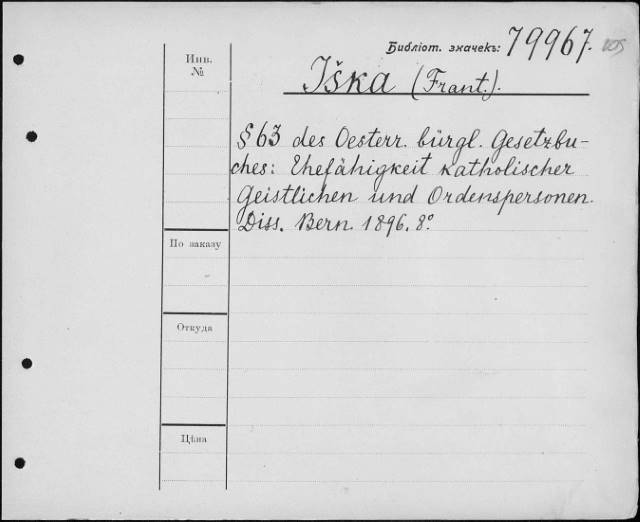 Библіот. значекъ: 79967.
Инв.
№
Iška (Frant.).
§ 63 des Oesterr. bürgl. Gesetzbu-
ches: Ehefähigkeit katholischer
Geistlichen und Ordenspersonen.
Diss. Bern. 1896. 8°.
По заказу
Откуда
Цѣна